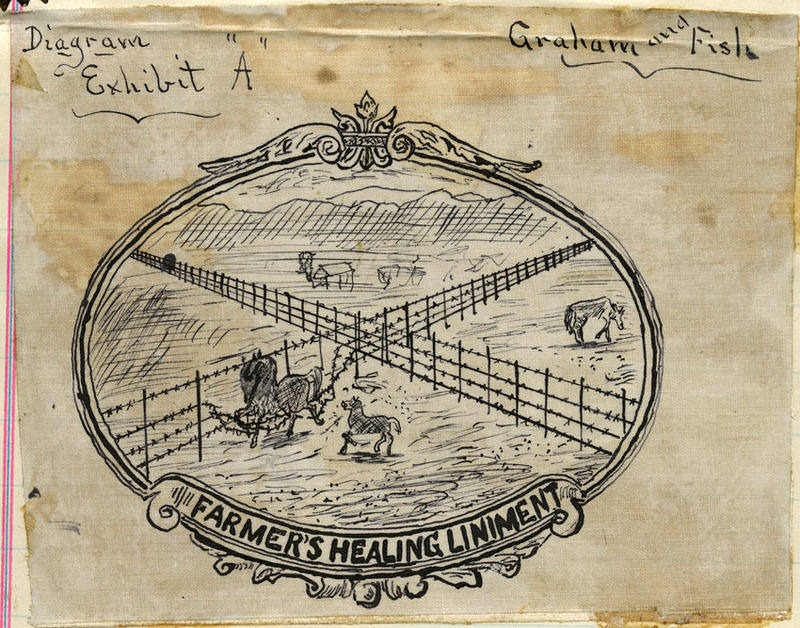 Diagram " "
Exhibit A
Graham and Fish
FARMER'S HEALING LINIMENT